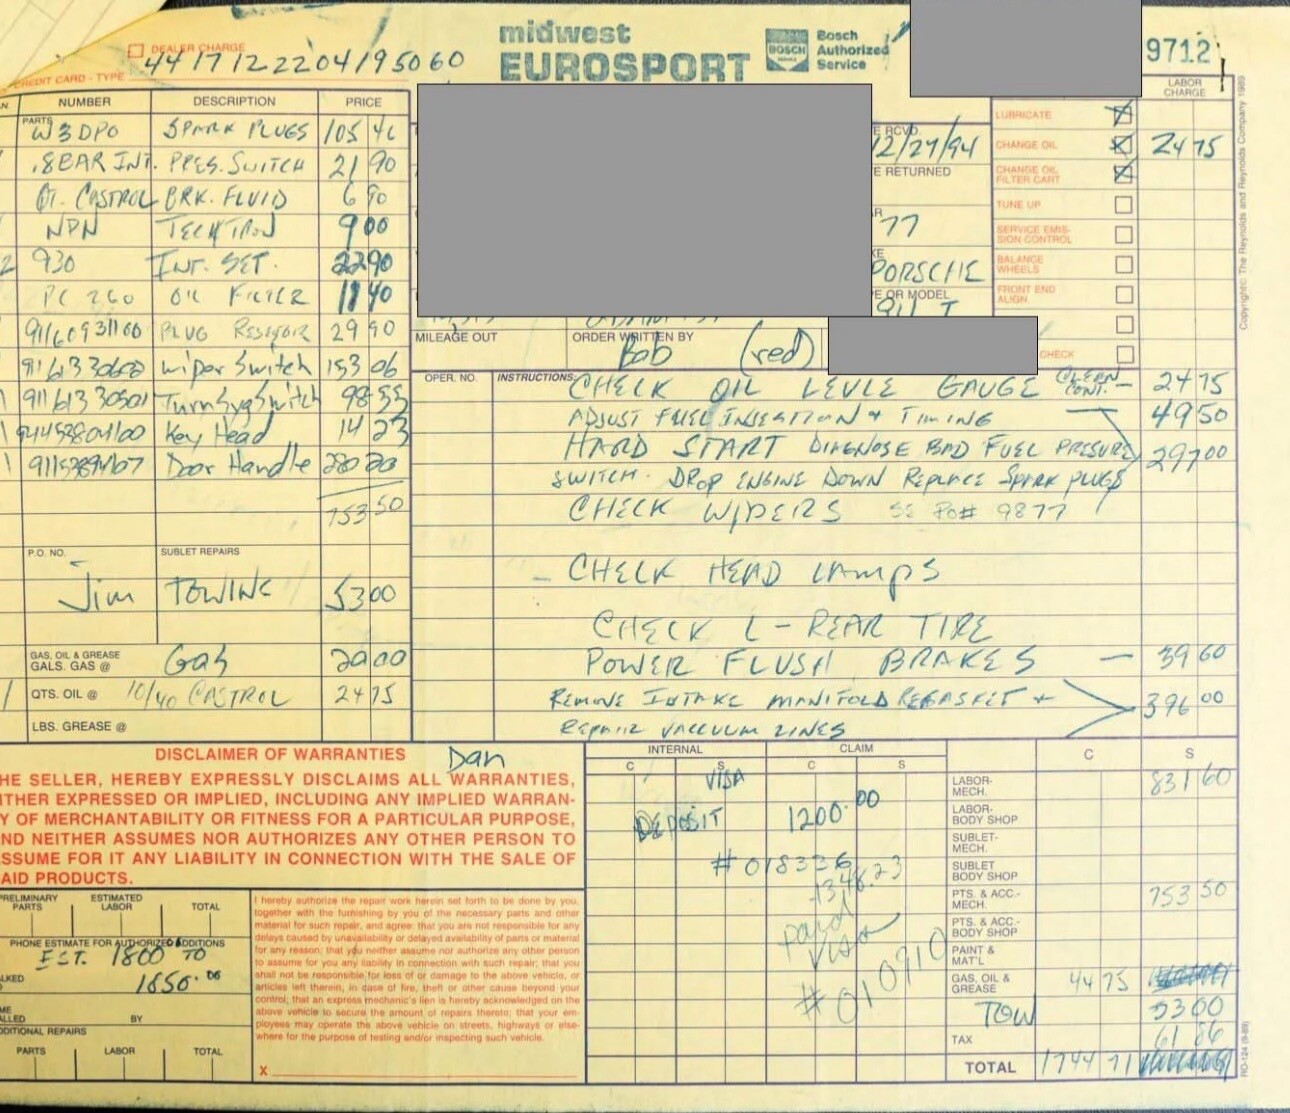 DEALER CHARGE
4417122204195060
CREDIT CARD - TYPE
midwest
EUROSPORT
BOSCH
SERVICE
Bosch
Authorized
Service
9712
NUMBER DESCRIPTION PRICE
PARTS
W3DPO SPARK PLUGS 105 46
.8BAR INT. PRES. SWITCH 21 90
QT. CASTROL BRK. FLUID 6 90
NPN TECHTRON 9 00
2 930 INT. SET. 22 90
PC 260 OIL FILTER 18 40
91160931100 PLUG RESISTOR 29 90
wiper Switch 153 06
1 91161330501 Turn Syg Switch 98 55
1 Key Head 14 23
1 Door Handle
753 50
P.O. NO. SUBLET REPAIRS
Jim TOWING 53 00
GAS, OIL & GREASE
GALS. GAS @ Gas 20 00
QTS. OIL @ 10/40 CASTROL 24 75
LBS. GREASE @
E RCVD.
12/27/94
E RETURNED
77
PORSCHE
E OR MODEL
911 T
MILEAGE OUT
ORDER WRITTEN BY
Bob (red)
LABOR
CHARGE
LUBRICATE
CHANGE OIL 24 75
CHANGE OIL
FILTER CART
TUNE UP
SERVICE EMIS-
SION CONTROL
BALANCE
WHEELS
FRONT END
ALIGN
CHECK
OPER. NO. INSTRUCTIONS:
CHECK OIL LEVLE GAUGE CLEAN CONT. — 24 75
ADJUST FUEL INJECTION + TIMING — 49 50
HARD START DIAGNOSE BAD FUEL PRESSURE 297 00
SWITCH. DROP ENGINE DOWN REPLACE SPARK PLUGS
CHECK WIPERS SE PO# 9877
- CHECK HEAD LAMPS
CHECK L-REAR TIRE
POWER FLUSH BRAKES — 39 60
REMOVE INTAKE MANIFOLD REGASKET + 396 00
REPAIR VACCUUM LINES
Copyright© The Reynolds and Reynolds Company 1989
DISCLAIMER OF WARRANTIES Dan
HE SELLER, HEREBY EXPRESSLY DISCLAIMS ALL WARRANTIES,
ITHER EXPRESSED OR IMPLIED, INCLUDING ANY IMPLIED WARRAN-
Y OF MERCHANTABILITY OR FITNESS FOR A PARTICULAR PURPOSE,
ND NEITHER ASSUMES NOR AUTHORIZES ANY OTHER PERSON TO
SSUME FOR IT ANY LIABILITY IN CONNECTION WITH THE SALE OF
AID PRODUCTS.
PRELIMINARY
PARTS
ESTIMATED
LABOR
TOTAL
PHONE ESTIMATE FOR AUTHORIZED ADDITIONS
EST. 1800 TO
1850.00
ALKED
ALLED BY
DDITIONAL REPAIRS
PARTS LABOR TOTAL
I hereby authorize the repair work herein set forth to be done by you,
together with the furnishing by you of the necessary parts and other
material for such repair, and agree: that you are not responsible for any
delays caused by unavailability or delayed availability of parts or material
for any reason; that you neither assume nor authorize any other person
to assume for you any liability in connection with such repair; that you
shall not be responsible for loss of or damage to the above vehicle, or
articles left therein, in case of fire, theft or other cause beyond your
control; that an express mechanic's lien is hereby acknowledged on the
above vehicle to secure the amount of repairs thereto; that your em-
ployees may operate the above vehicle on streets, highways or else-
where for the purpose of testing and/or inspecting such vehicle.
X
INTERNAL CLAIM
C S C S
VISA
DEPOSIT 1200.00
#018336
1348.23
paid
Visa
#010910
C S
LABOR-
MECH. 831 60
LABOR-
BODY SHOP
SUBLET-
MECH.
SUBLET
BODY SHOP
PTS. & ACC.-
MECH. 753 50
PTS. & ACC.-
BODY SHOP
PAINT &
MAT'L
GAS, OIL &
GREASE 44 75
TOW 53 00
TAX 61 86
TOTAL 1744 71
RO-124 (9-89)